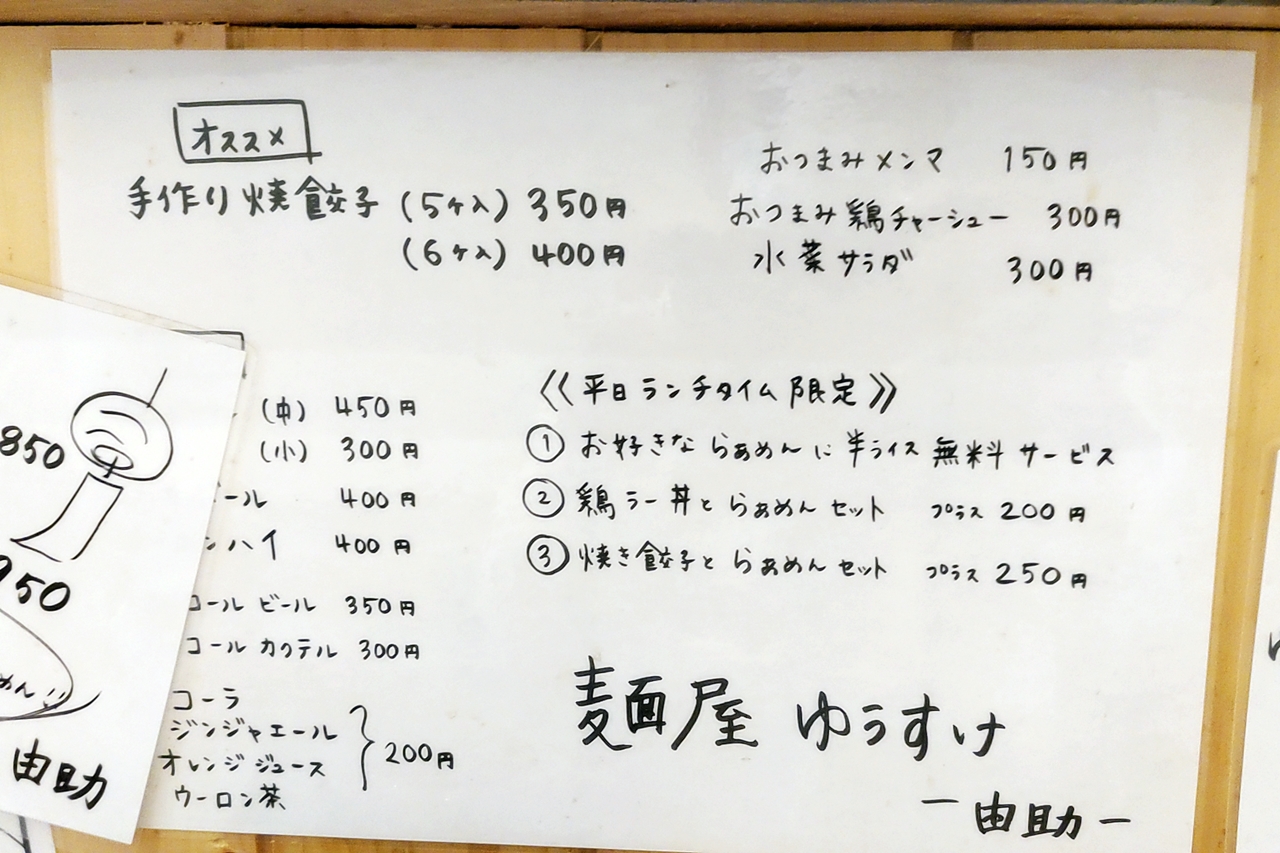 オススメ
手作り焼餃子 (5ケ入) 350円
(6ケ入) 400円
おつまみメンマ 150円
おつまみ鶏チャーシュー 300円
水菜サラダ 300円
(中) 450円
(小) 300円
ール 400円
ンハイ 400円
コールビール 350円
コールカクテル 300円
コーラ
ジンジャエール
オレンジジュース
ウーロン茶
200円
《平日ランチタイム限定》
① お好きならぁめんに半ライス無料サービス
② 鶏ラー丼とらぁめんセット プラス200円
③ 焼き餃子とらぁめんセット プラス250円
麺屋 ゆうすけ
ー由助ー
850
950
めん!!
由助